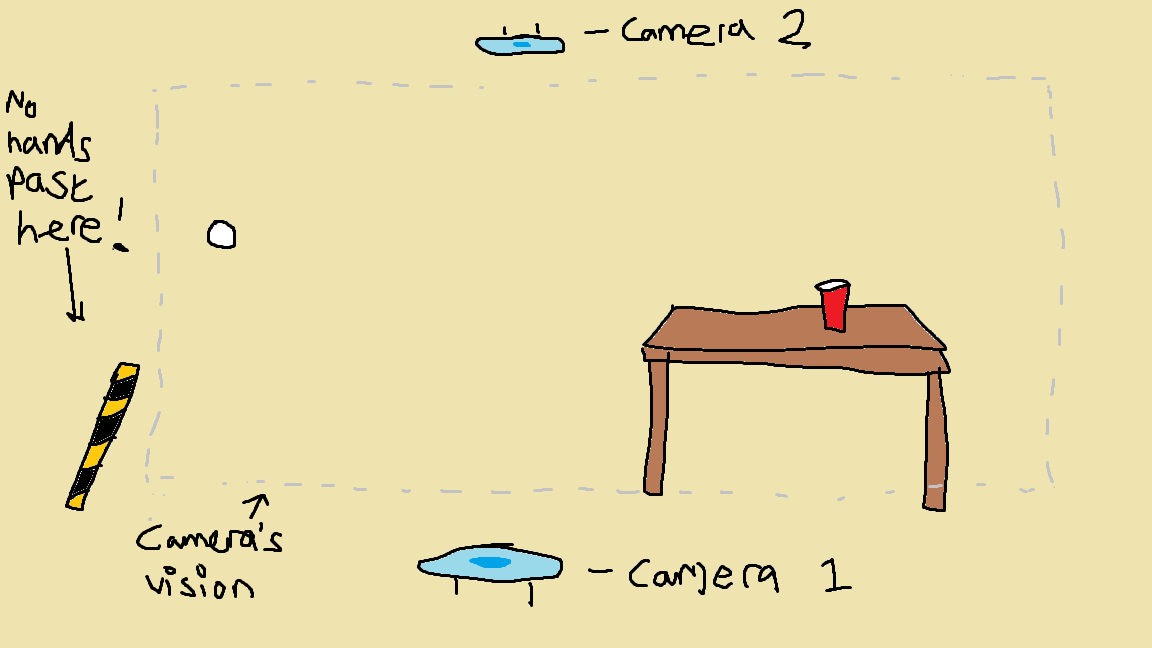 - Camera 2
No
hands
past
here!
Camera's
vision
- Camera 1